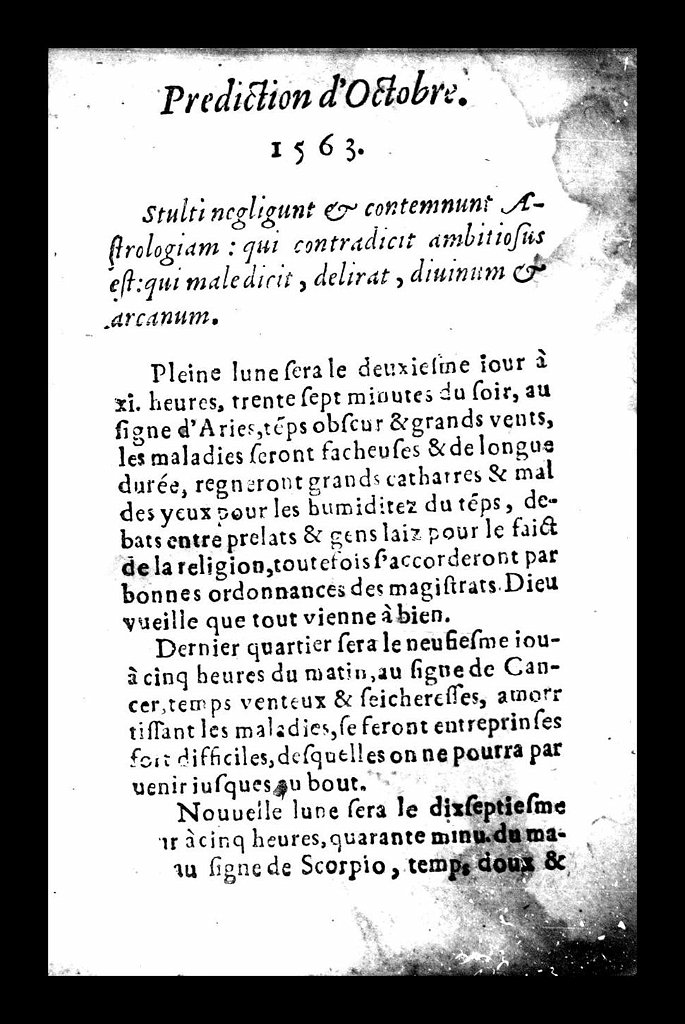 Prediction d'Octobre.
1563.
Stulti negligunt & contemnunt A-
ſtrologiam : qui contradicit ambitioſus
eſt: qui maledicit, delirat, diuinum &
arcanum.
Pleine lune ſera le deuxieſme iour à
xi. heures, trente ſept minutes du ſoir, au
ſigne d'Aries, tẽps obſcur & grands vents,
les maladies ſeront facheuſes & de longue
durée, regneront grands catharres & mal
des yeux pour les humiditez du tẽps, de-
bats entre prelats & gens laiz pour le faict
de la religion, toutefois ſ'accorderont par
bonnes ordonnances des magiſtrats. Dieu
vueille que tout vienne à bien.
Dernier quartier ſera le neufieſme iou-
à cinq heures du matin, au ſigne de Can-
cer, temps venteux & ſeichereſſes, amorr
tiſſant les maladies, ſe feront entreprinſes
fort difficiles, deſquelles on ne pourra par
uenir iuſques au bout.
Nouuelle lune ſera le dixſeptieſme
ur à cinq heures, quarante minu. du ma-
au ſigne de Scorpio, temps doux &